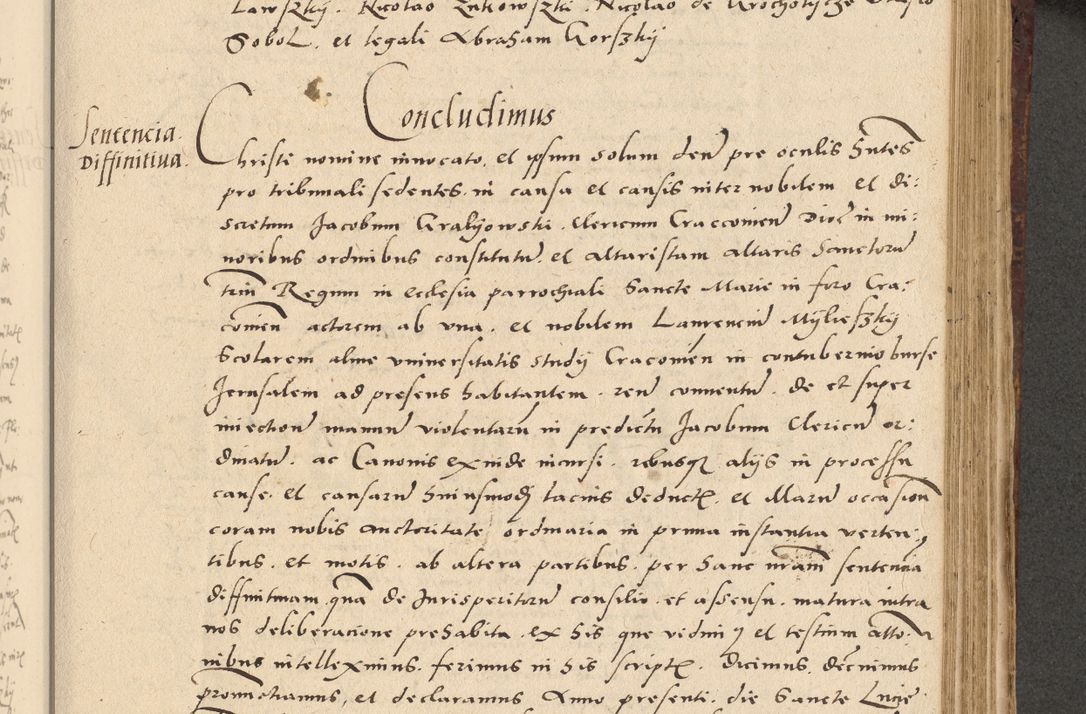 Sobol. et legali Abraham Gorszkij
Concludimus
Sentencia
Diffinitiua.
Christi nomine inuocato. et ipsum solum deum pre oculis habentes
pro tribunali sedentes. in causa et causis inter nobilem et di:
scretum Jacobum Gralijowski. Clericum Cracouien Dioc in mi:
noribus ordinibus constitutum. et altaristam altaris Sanctorum
trium Regum in ecclesia parrochiali Sancte Marie in foro Cra:
couien actorem ab vna. et nobilem Laurencium Mijlieszkij
Scolarem alme vniuersitatis studij Cracouien in contubernio burse
Jerusalem ad presens habitantem. reum conuentum. de et super
iniectione manuum violentarum in predictum Jacobum Clericum or:
dinatum. ac Canonis exinde incursi. rebusque alijs in processu
cause. et causarum huiusmodi lacius deductis. et illarum occasione
coram nobis auctoritate ordinaria in prima instantia verten:
tibus. et motis. ab altera partibus. per hanc nram sententiam
diffinitiuam. quam de Jurisperitorum consilio. et assensu. matura intra
nos deliberacione prehabita. ex his que vidimus et testium atto:
nibus intelleximus. ferimus in his scriptis. dicimus, decernimus
pronuctiamus, et declaramus Anno presenti. die Sancte Lucie